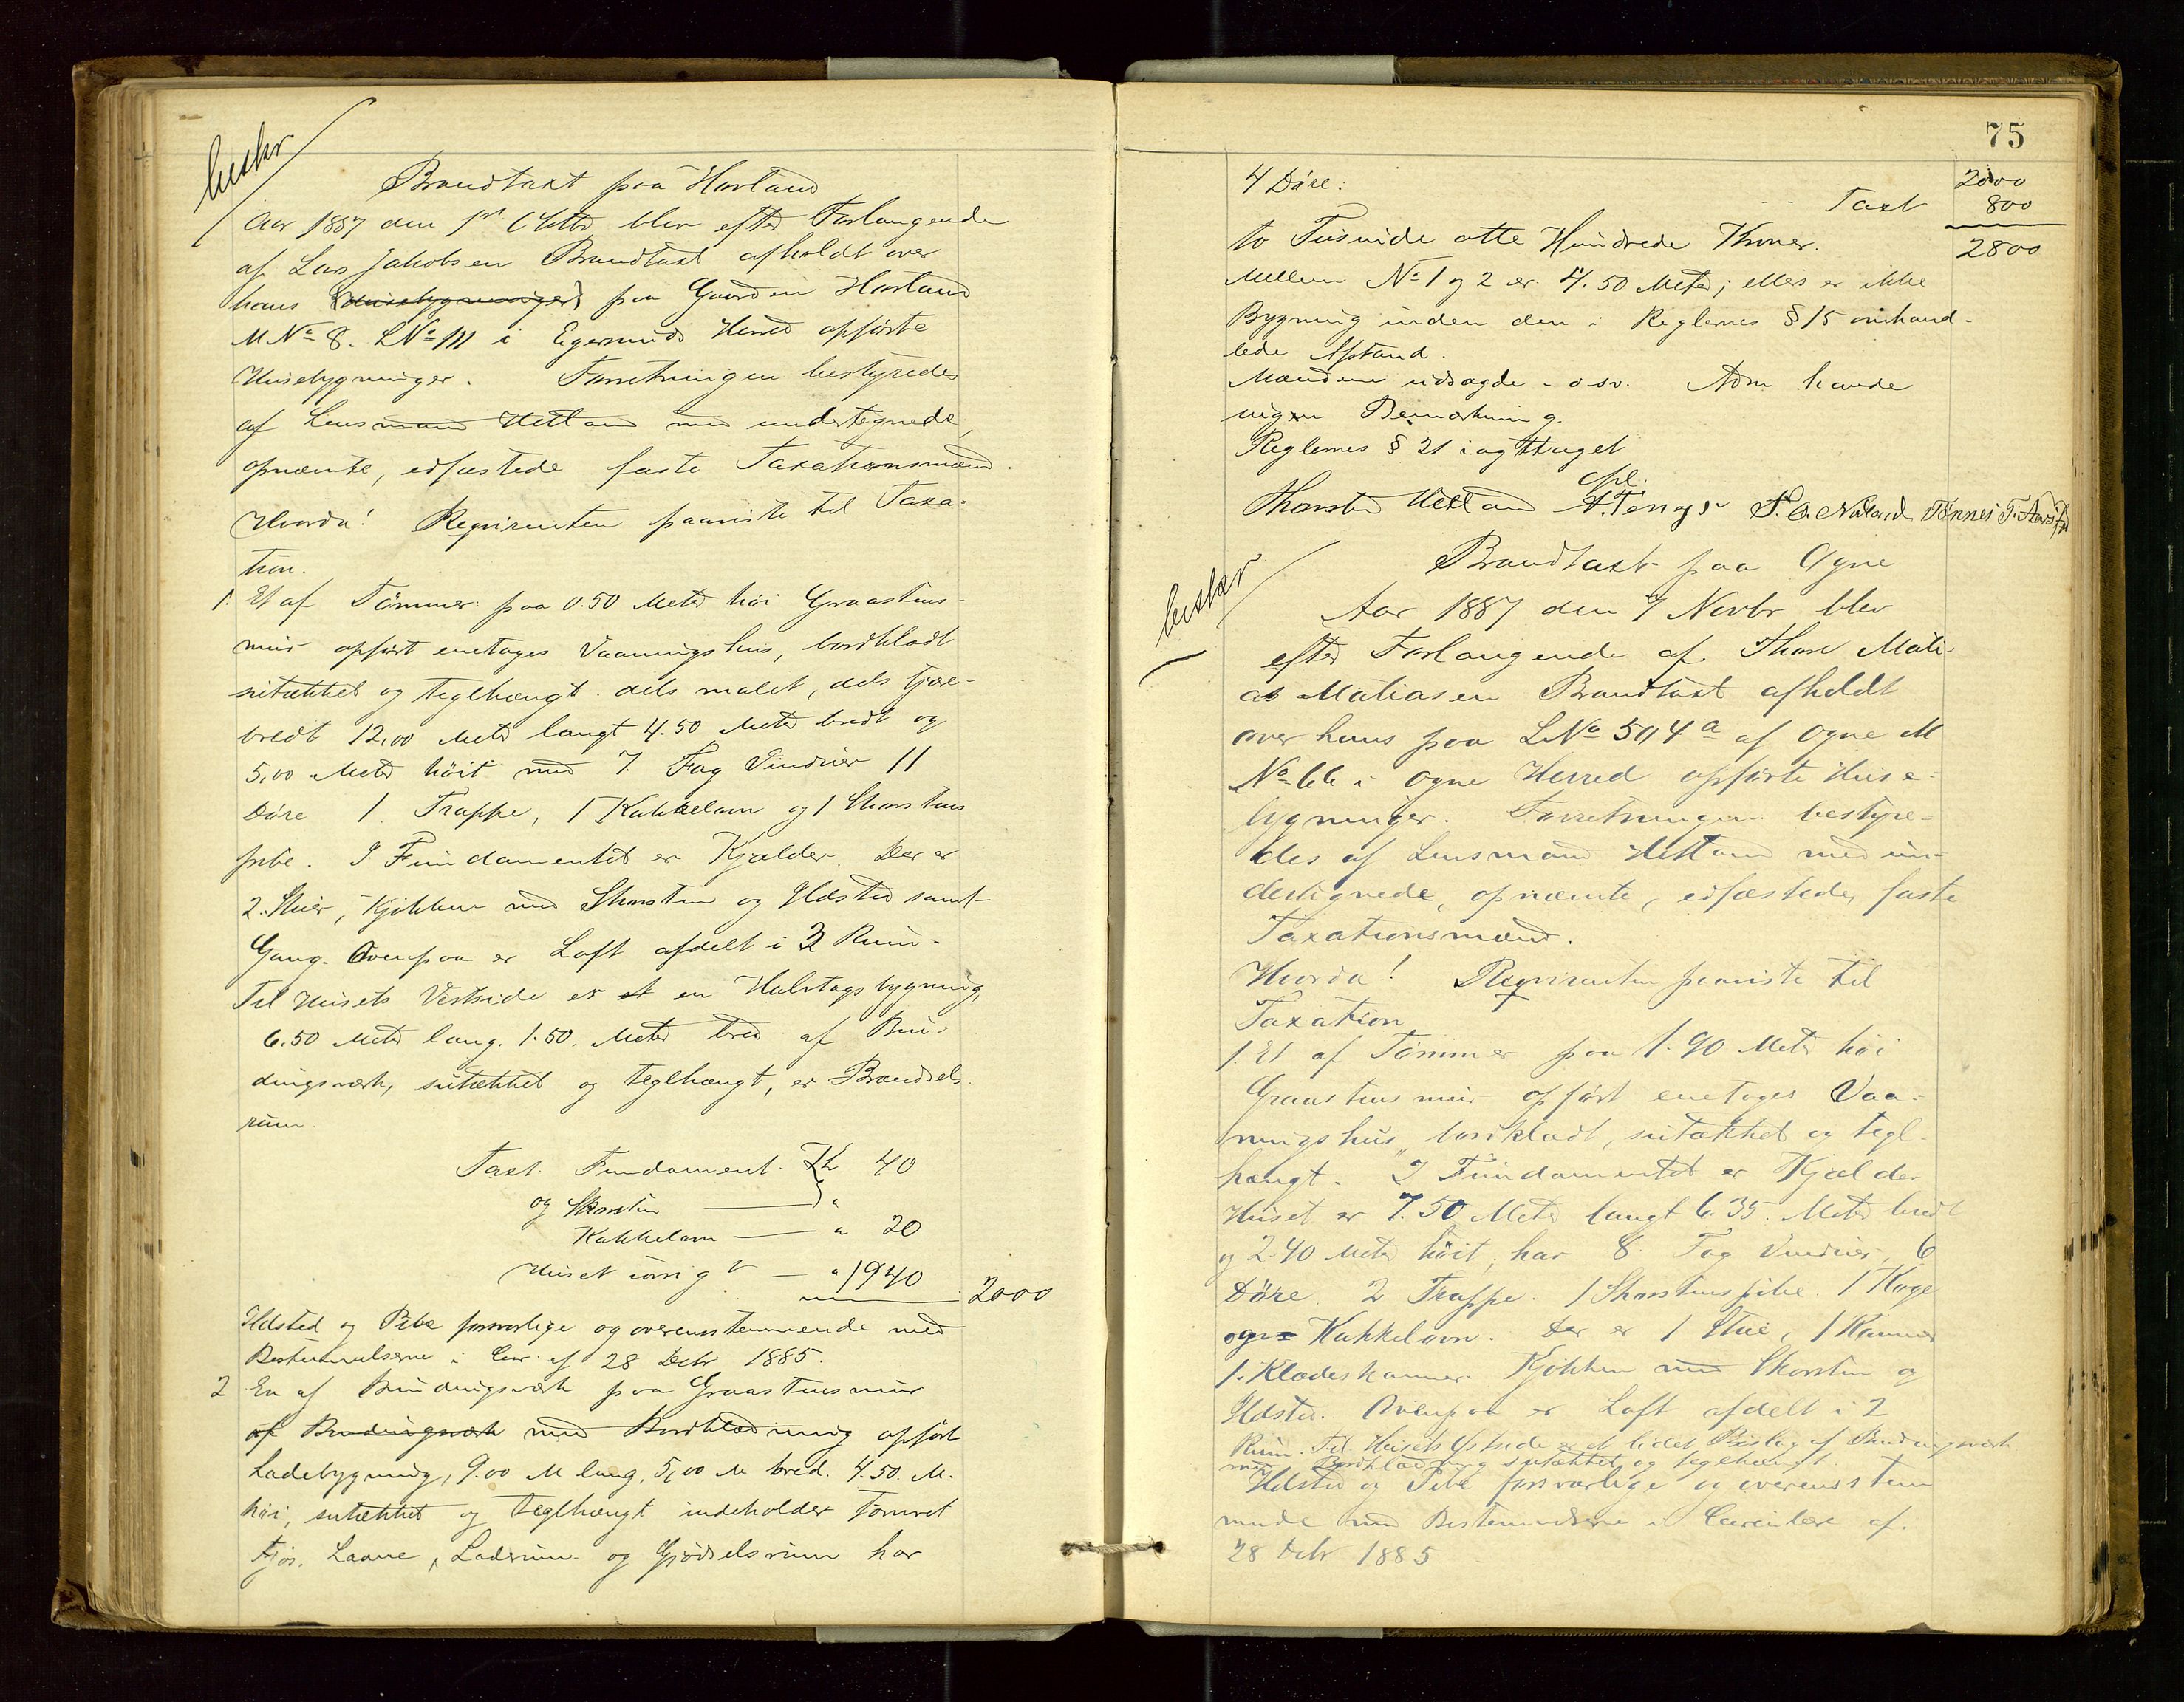 beskr
Brandtaxt paa Havland
Aar 1887 den 1st Octbr blev efter Forlangende
af Lars Jakobsen Brandtaxt afholdt over
hans (Husebygninger) paa Gaarden Havland
M No 8. L No 111 i Egersunds Herred opførte
Husebygninger. Forretningen bestyredes
af Lensmand Hetland med undertegnede,
opnævnte, edfæstede faste Taxationsmænd.
Hvorda! Reqvirenten paaviste til Taxa-
tion.
1. Et af Tømmer paa 0.50 Meter høi Graastens-
mur opført enetages Vaaningshus, bordklædt
sutækket og teglhængt. dels malet, dels tjære-
bredt 12,00 Meter langt 4.50 Meter bredt og
5,00 Meter høit med 7. Fag Vinduer 11
Døre 1 Trappe, 1 Kakkelovn og 1 Skorstens
pibe. I Fundamentet er Kjælder. Der er
2. Stuer, Kjøkken med Skorsten og Ildsted samt
Gang. Ovenpaa er Loft afdelt i 3 Rum-
Til Husets Vestside er et en Halvtagsbygning,
6.50 Meter lang. 1.50. Meter bred af Bin-
dingsværk, sutækket og teglhængt, er Brændsels
rum.
Taxt. Fundament. Kr 40
og Skorsten " 
Kakkelovn " 20
Huset iøvrigt " 1940 2000
Ildsted og Pibe forsvarlige og overensstemmende med
Bestemmelserne i Circ. af 28 Decbr 1885.
2 En af Bindingsværk paa Graastensmur
af Bindingsværk med Bordklædning opført
Ladebygning, 9.00 M lang, 5,00 M bred. 4.50. M.
høi, sutækket og teglhængt indeholder tømret
Fjøs. Laane, Laderum og Gjødselsrum har
75
4 Døre. 2000
Taxt 800
to Tusinde otte Hundrede Kroner. 2800
Mellem No 1 og 2 er 4.50 Meter; ellers er ikke
Bygning inden den i Reglernes § 15 omhand-
lede Afstand.
Mændene udsagde - osv. Adm havde
ingen Bemærkning.
Reglernes § 21 iagttaget
Thorsten Hetland A. Tengs Tønnes T.
beskr
Brandtaxt paa Ogne
Aar 1887 den 7 Novbr blev
efter Forlangende af Thore Mati-
as Matiasen Brandtaxt afholdt
over hans paa L No 504 a af Ogne M
No 66 i Ogne Herred opførte Huse-
bygninger. Forretningen bestyre-
des af Lensmand Hetland med un-
dertegnede, opnævnte, edfæstede, faste
Taxationsmænd.
Hvorda! Reqvirenten paaviste til
Taxation
1. Et af Tømmer paa 1.90 Meter høi
Graastensmur opført enetages Vaa-
ningshus, bordklædt, sutækket og tegl-
hængt. I Fundamentet er Kjælder
Huset er 7.50 Meter langt 6.35. Meter bredt
og 2.40 Meter høit, har 8 Fag Vinduer, 6
Døre. 2 Trappe. 1 Skorstenspibe. 1 Koge
ogn Kakkelovn. Der er 1 Stue, 1 Kammer
1. Klædeskammer. Kjøkken med Skorsten og
Ildsted. Ovenpaa er Loft afdelt i 2
Rum. Til Husets Østside er et lidet Bislag af Bindingsværk
med Bordklædning sutækket og teglhængt.
Ildsted og Pibe forsvarlige og overensstem
mende med Bestemmelserne i Circulære af.
28 Decbr 1885